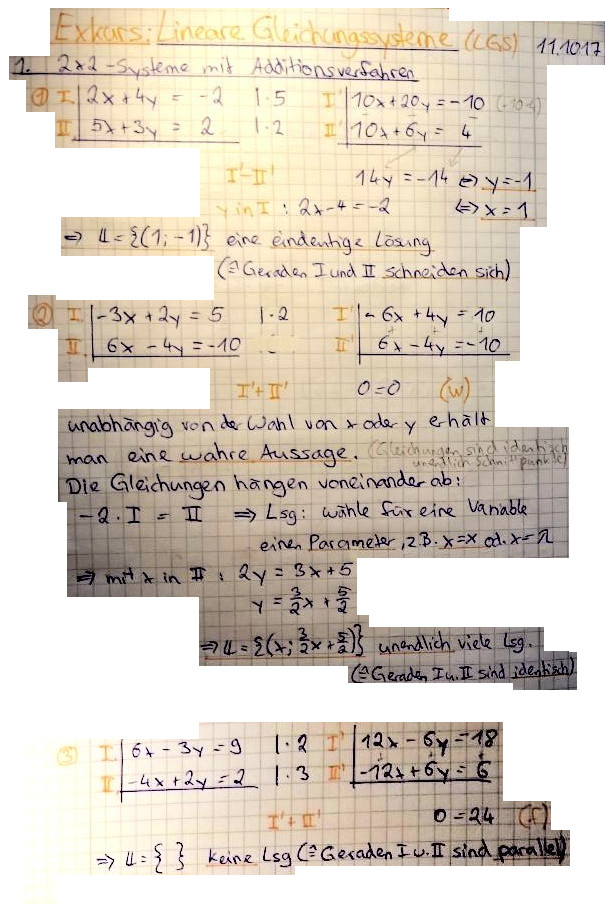 Exkurs: Lineare Gleichungssysteme (LGS) 11.10.17
1. 2x2-Systeme mit Additionsverfahren
① I 2x+4y = -2 |·5 I' 10x+20y = -10
II 5x+3y = 2 |·2 II' 10x+6y = 4
I'-II' 14y = -14 ⇔ y=-1
y in I : 2x-4=-2 ⇔ x=1
⇒ 𝕃={(1;-1)} eine eindeutige Lösung
(≙ Geraden I und II schneiden sich)
② I -3x+2y = 5 |·2 I' -6x+4y = 10
II 6x-4y = -10 II' 6x-4y = -10
I'+II' 0=0 (w)
unabhängig von der Wahl von x oder y erhält
man eine wahre Aussage. (Gleichungen sind identisch
unendlich Schnittpunkte)
Die Gleichungen hängen voneinander ab:
-2·I = II ⇒ Lsg: wähle für eine Variable
einen Parameter, z.B. x=x od. x=λ
⇒ mit x in II : 2y = 3x+5
y = 3/2x + 5/2
⇒ 𝕃={(x; 3/2x+5/2)} unendlich viele Lsg.
(≙ Geraden I u. II sind identisch)
③ I 6x-3y = 9 |·2 I' 12x-6y = 18
II -4x+2y = 2 |·3 II' -12x+6y = 6
I'+II' 0=24 (f)
⇒ 𝕃={ } keine Lsg (≙ Geraden I u. II sind parallel)